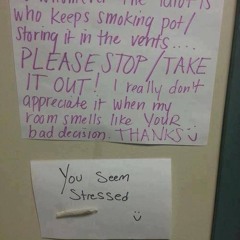 whomever the idiot is
who keeps smoking pot/
storing it in the vents....
PLEASE STOP/TAKE
IT OUT! I really don't
appreciate it when my
room smells like YOUR
bad decision. THANKS
You Seem
Stressed